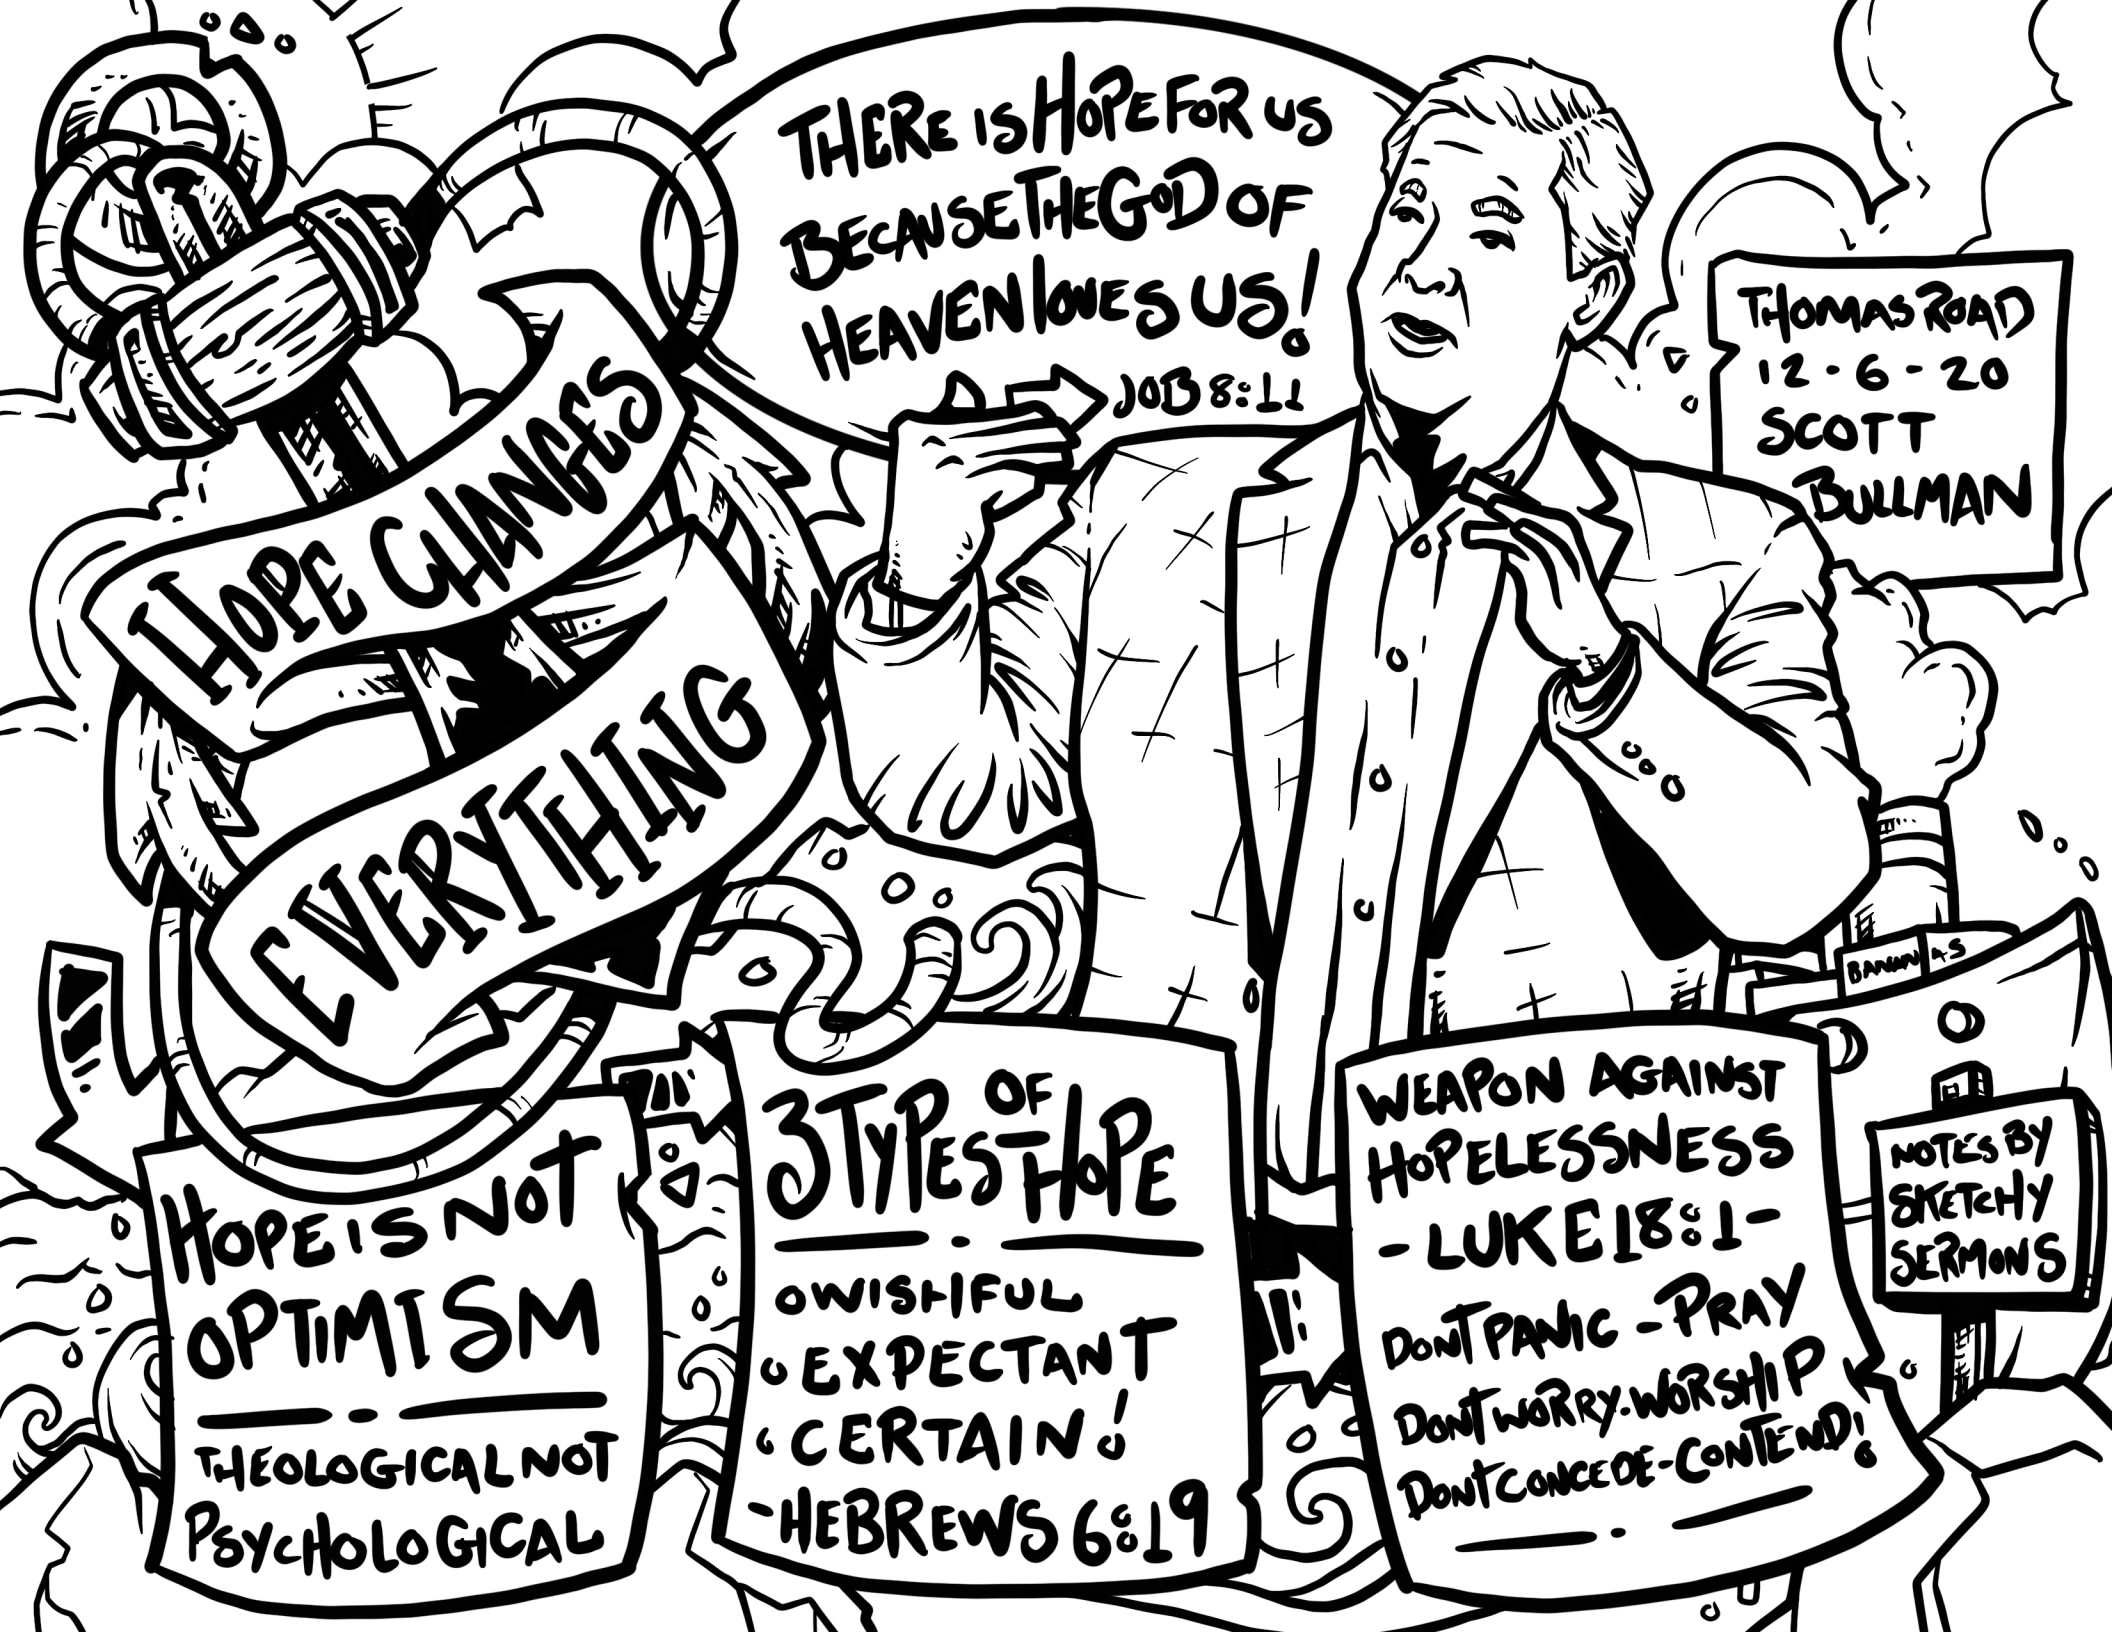 THERE IS HOPE FOR US
BECAUSE THE GOD OF
HEAVEN LOVES US!
JOB 8:11
THOMAS ROAD
12-6-20
SCOTT
BULLMAN
HOPE CHANGES
EVERYTHING
HOPE IS NOT
OPTIMISM
THEOLOGICAL NOT
PSYCHOLOGICAL
3 TYPES OF HOPE
WISHFUL
EXPECTANT
CERTAIN!
-HEBREWS 6:19
WEAPON AGAINST
HOPELESSNESS
- LUKE 18:1 -
DONT PANIC - PRAY
DONT WORRY - WORSHIP
DONT CONCEDE - CONTEND!
NOTES BY
SKETCHY
SERMONS